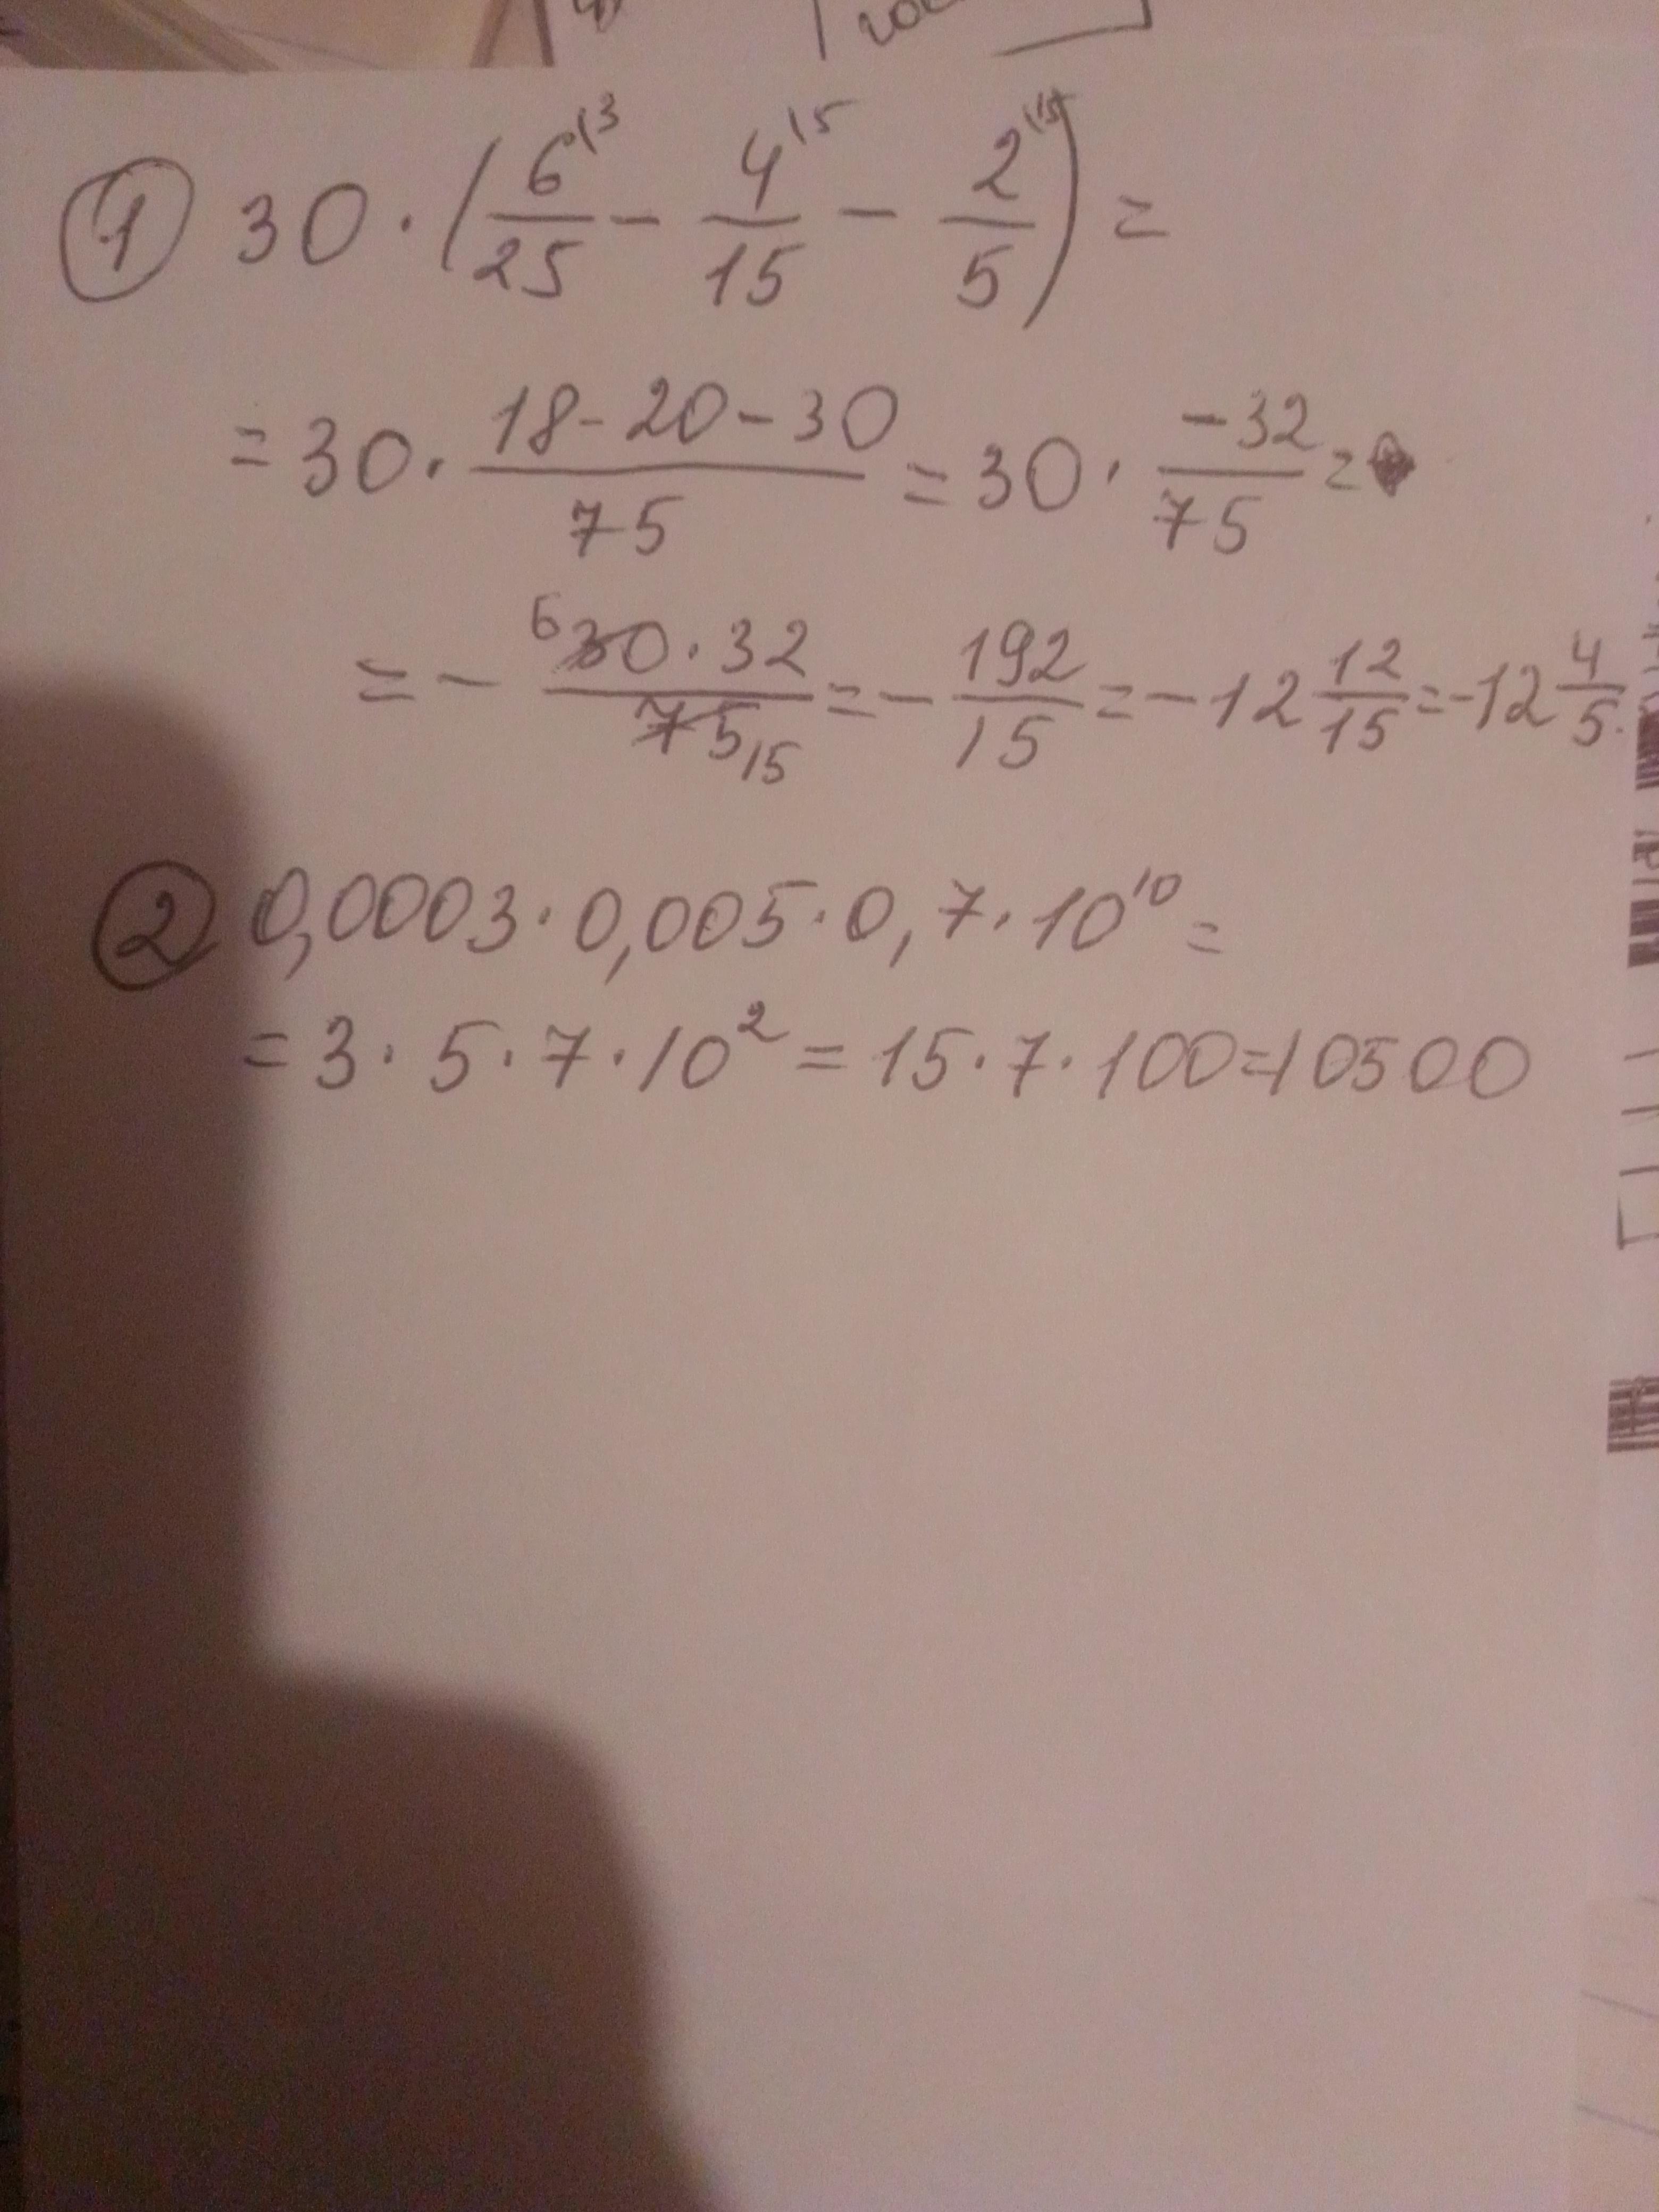 ① 30 · (6\3/25 - 4\5/15 - 2\15/5) =
= 30 · (18-20-30)/75 = 30 · -32/75 =
= - 6 30·32/75 15 = - 192/15 = -12 12/15 = -12 4/5.
② 0,0003 · 0,005 · 0,7 · 10¹⁰ =
= 3 · 5 · 7 · 10² = 15 · 7 · 100 = 10500